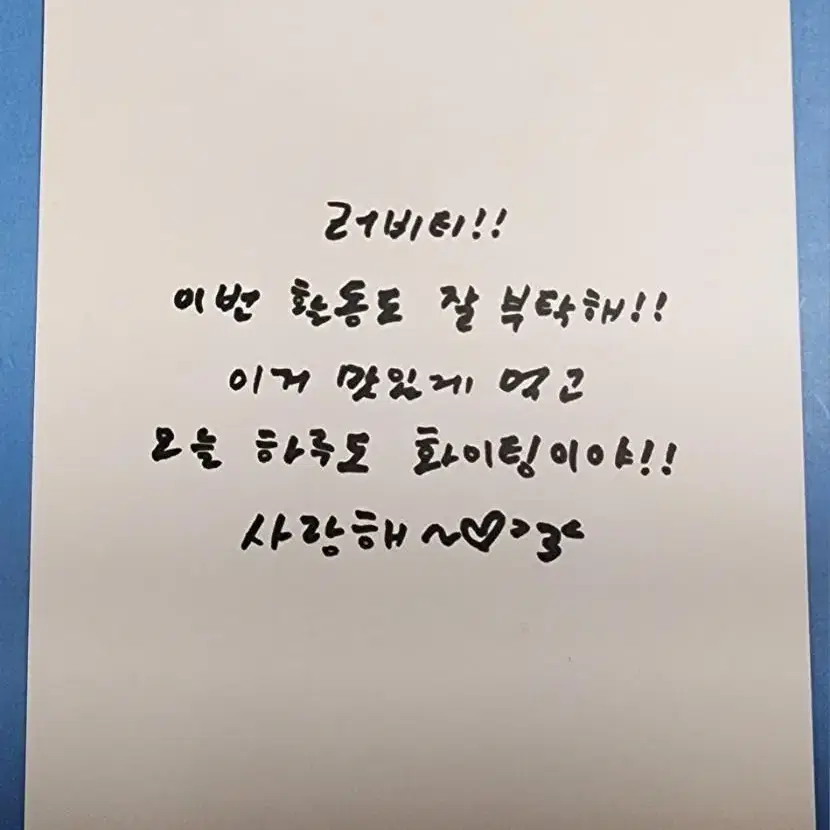 러비티!!
이번 활동도 잘 부탁해!!
이거 맛있게 먹고
오늘 하루도 화이팅이야!!
사랑해~♡>3<